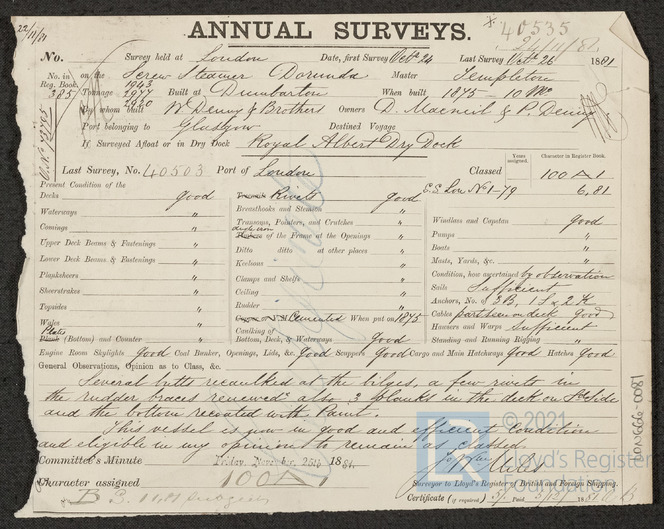 22/11/81
40535
ANNUAL SURVEYS.
24/11/81
No. Survey held at London Date, first Survey Octr 24 Last Survey Octr 26 1881
No. in Reg. Book. 385 on the Screw Steamer Dorunda Master Templeton
Tonnage 1943 2977 Built at Dumbarton When built 1875 - 10 Mo
By whom built W Denny & Brothers Owners D. Macneil & P. Denny
Port belonging to Glasgow Destined Voyage
If Surveyed Afloat or in Dry Dock Royal Albert Dry Dock
Last Survey, No. 40503 Port of London Classed Years assigned. Character in Register Book. 100 A 1
S.S Lon No 1-79 6,81
Present Condition of the
Decks good
Waterways "
Comings "
Upper Deck Beams & Fastenings "
Lower Deck Beams & Fastenings "
Planksheers "
Sheerstrakes "
Topsides "
Wales "
Plates
Plank (Bottom) and Counter "
Rivets good
Breasthooks and Stemson "
Transons, Pointers, and Crutches "
of the Frame at the Openings "
Ditto ditto at other places "
Keelsons "
Clamps and Shelfs "
Ceiling "
Rudder "
Cemented When put on 1875
Caulking of Bottom, Deck, & Waterways Good
Windlass and Capstan good
Pumps "
Boats "
Masts, Yards, &c. "
Condition, how ascertained by observation
Sails Sufficient
Anchors, No. of 3B, 1S & 2K
Cables part seen on deck good
Hawsers and Warps Sufficient
Standing and Running Rigging "
Engine Room Skylights good Coal Bunker, Openings, Lids, &c. good Scuppers good Cargo and Main Hatchways good Hatches good
General Observations, Opinion as to Class, &c.
Several butts recaulked at the bilges, a few rivets in
the rudder braces renewed also 3 planks in the deck on Sd side
and the bottom recoated with Paint.
This vessel is now in good and efficient condition
and eligible in my opinion to remain as classed
Committee's Minute Friday, November 25th 1881.
Character assigned 100 A 1
Surveyor to Lloyd's Register of British and Foreign Shipping.
Certificate (if required) Paid 1881
LON666-0081
© 2021
Lloyd's Register
Foundation